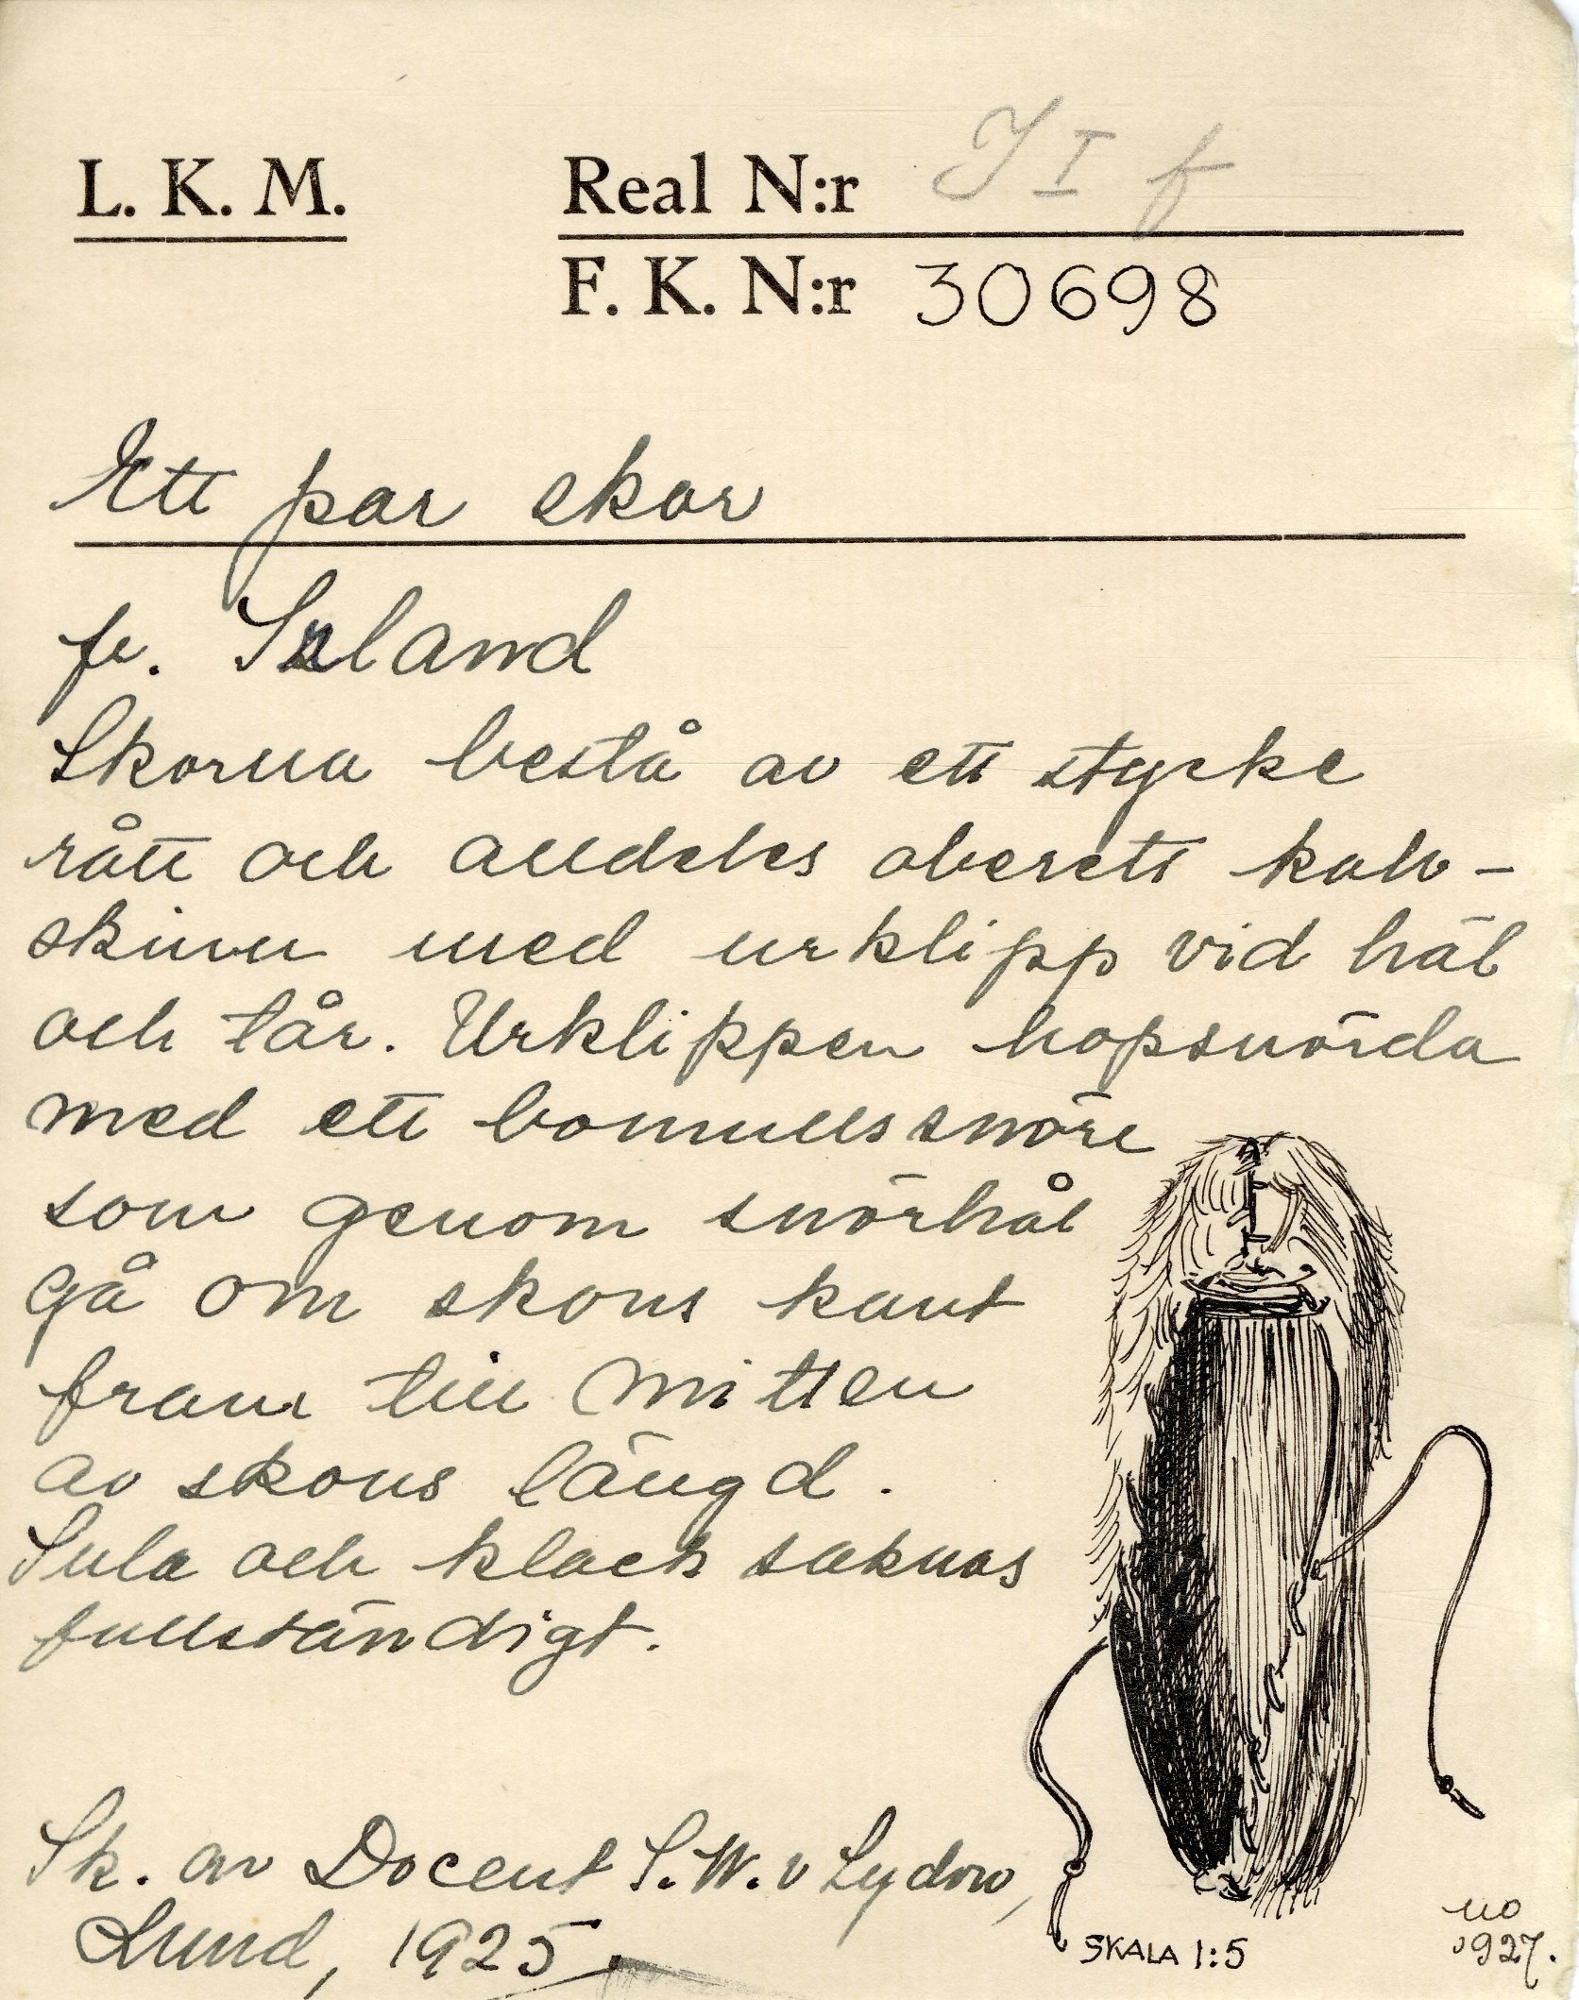 L. K. M.
Real N:r I I f
F. K. N:r 30698
Ett par skor
fr. Island
Skorna bestå av ett stycke
rått och alldeles oberett kalv-
skinn med urklipp vid häl
och tår. Urklippen hopsnörda
med ett bomullssnöre
som genom snörhål
gå om skons kant
fram till mitten
av skons längd.
Sula och klack saknas
fullständigt.
Sk. av Docent S. W. v Sydow,
Lund, 1925.
SKALA 1:5
1927.